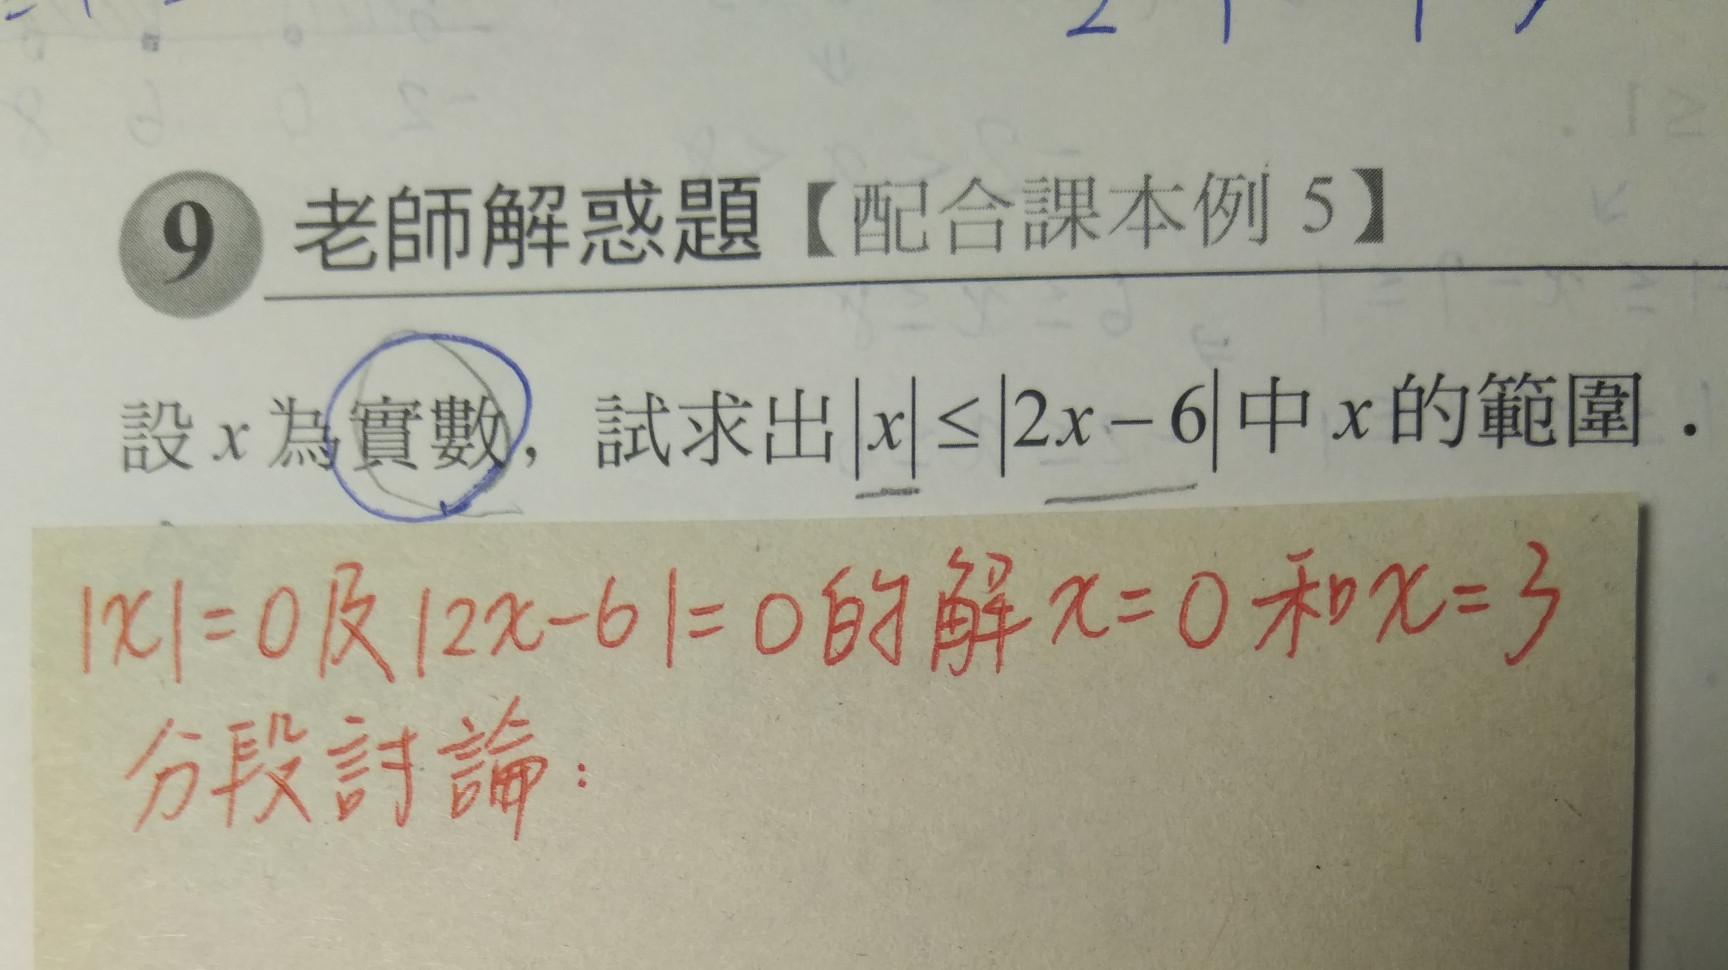 9 老師解惑題【配合課本例 5】
設 x 為實數，試求出|x| ≤ |2x − 6|中 x 的範圍．
|x|=0及|2x-6|=0的解x=0和x=3
分段討論：